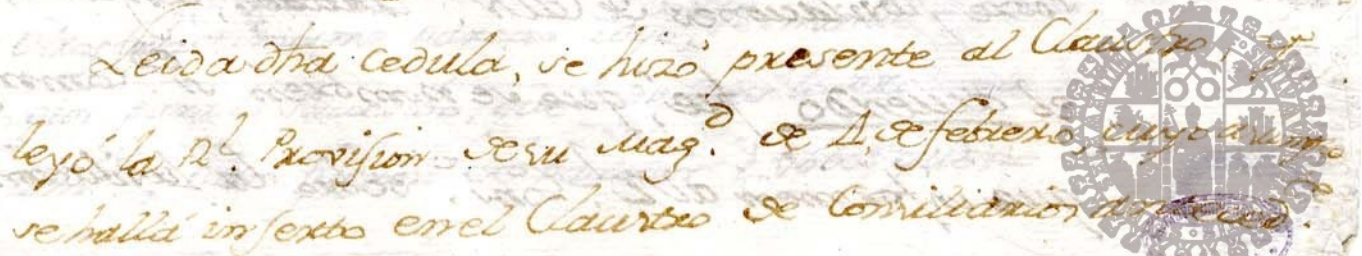 Leida dha cedula, se hizó presente al Claustro, y
leyó la Rl. Provision de su Magd. de 4, de febrero, cuyo asumpto
se hallá inserto en el Claustro de Consiliarios